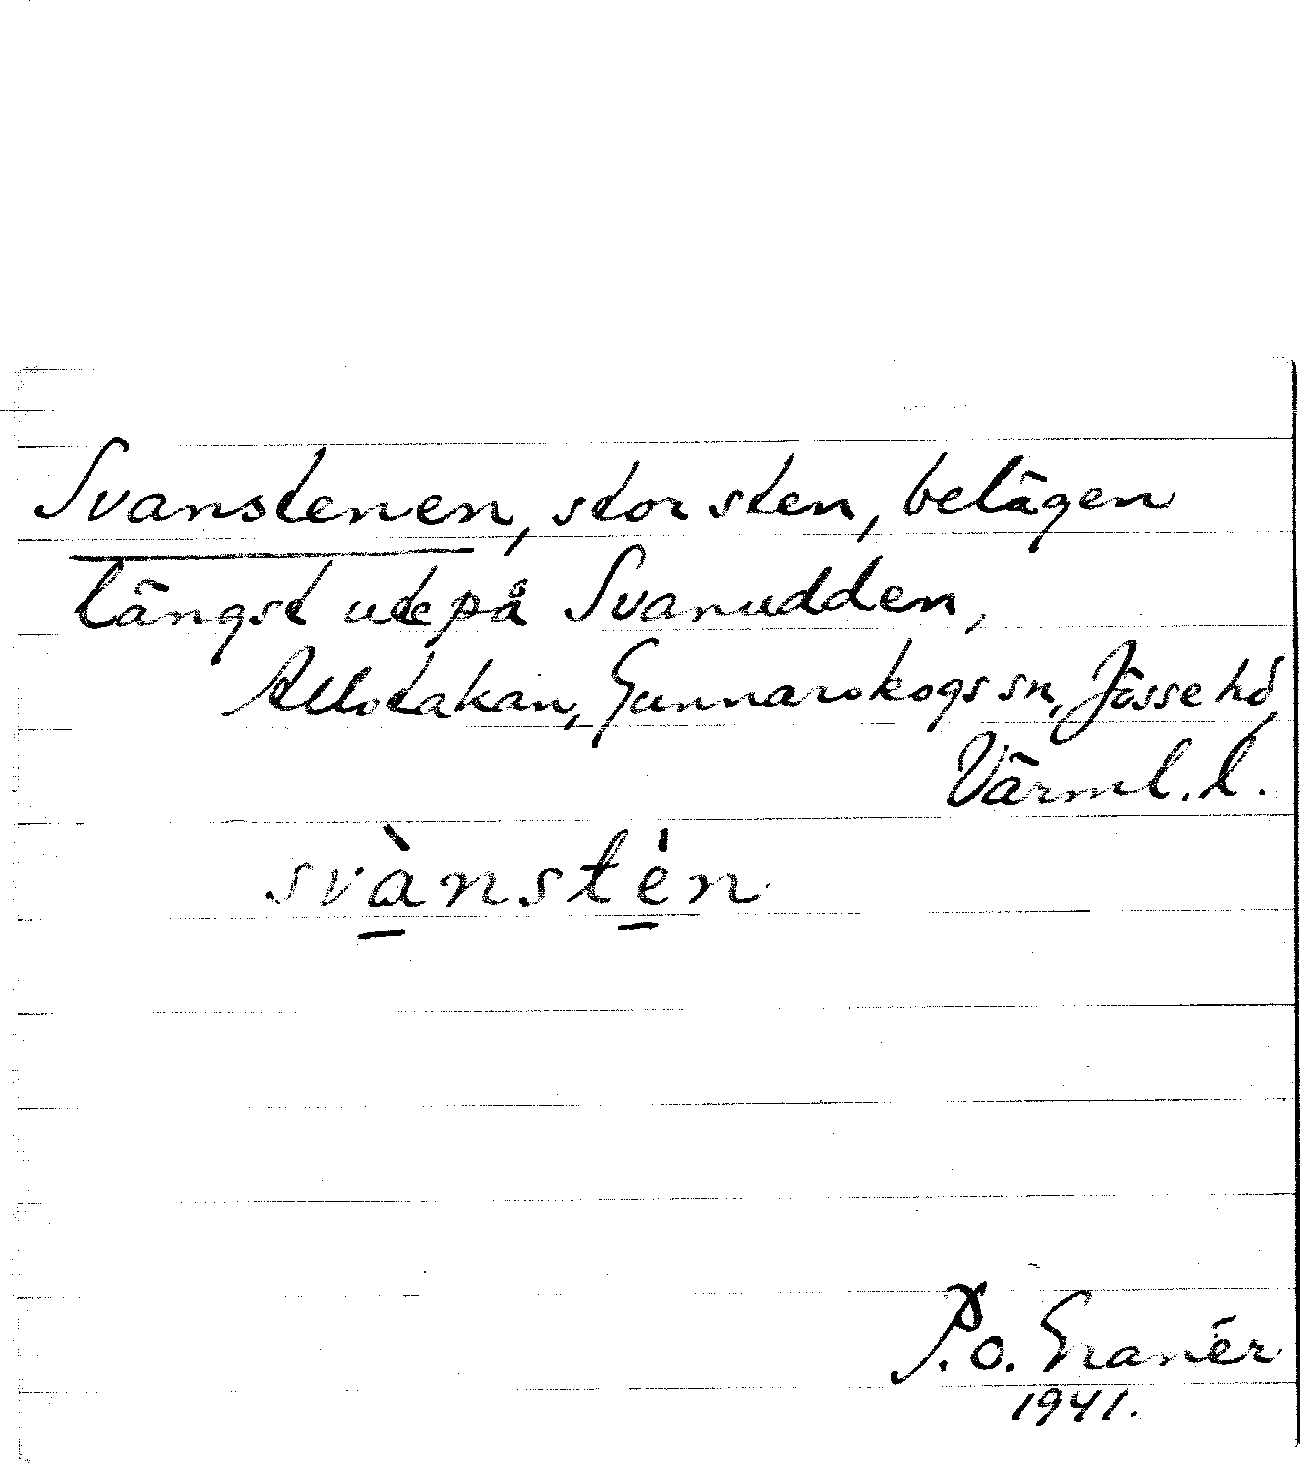 Svanstenen, stor sten, belägen
längst ute på Svanudden,
Allotakan, Gunnarskogs sn, Jösse hd,
Värml. l.
svànstén
P.O. Granér
1941.